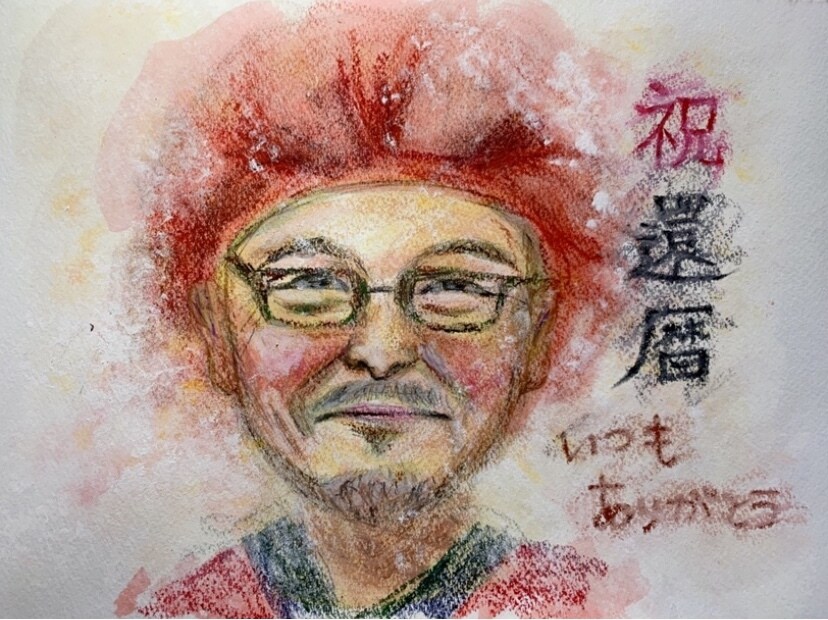 祝
還暦
いつも
ありがとう